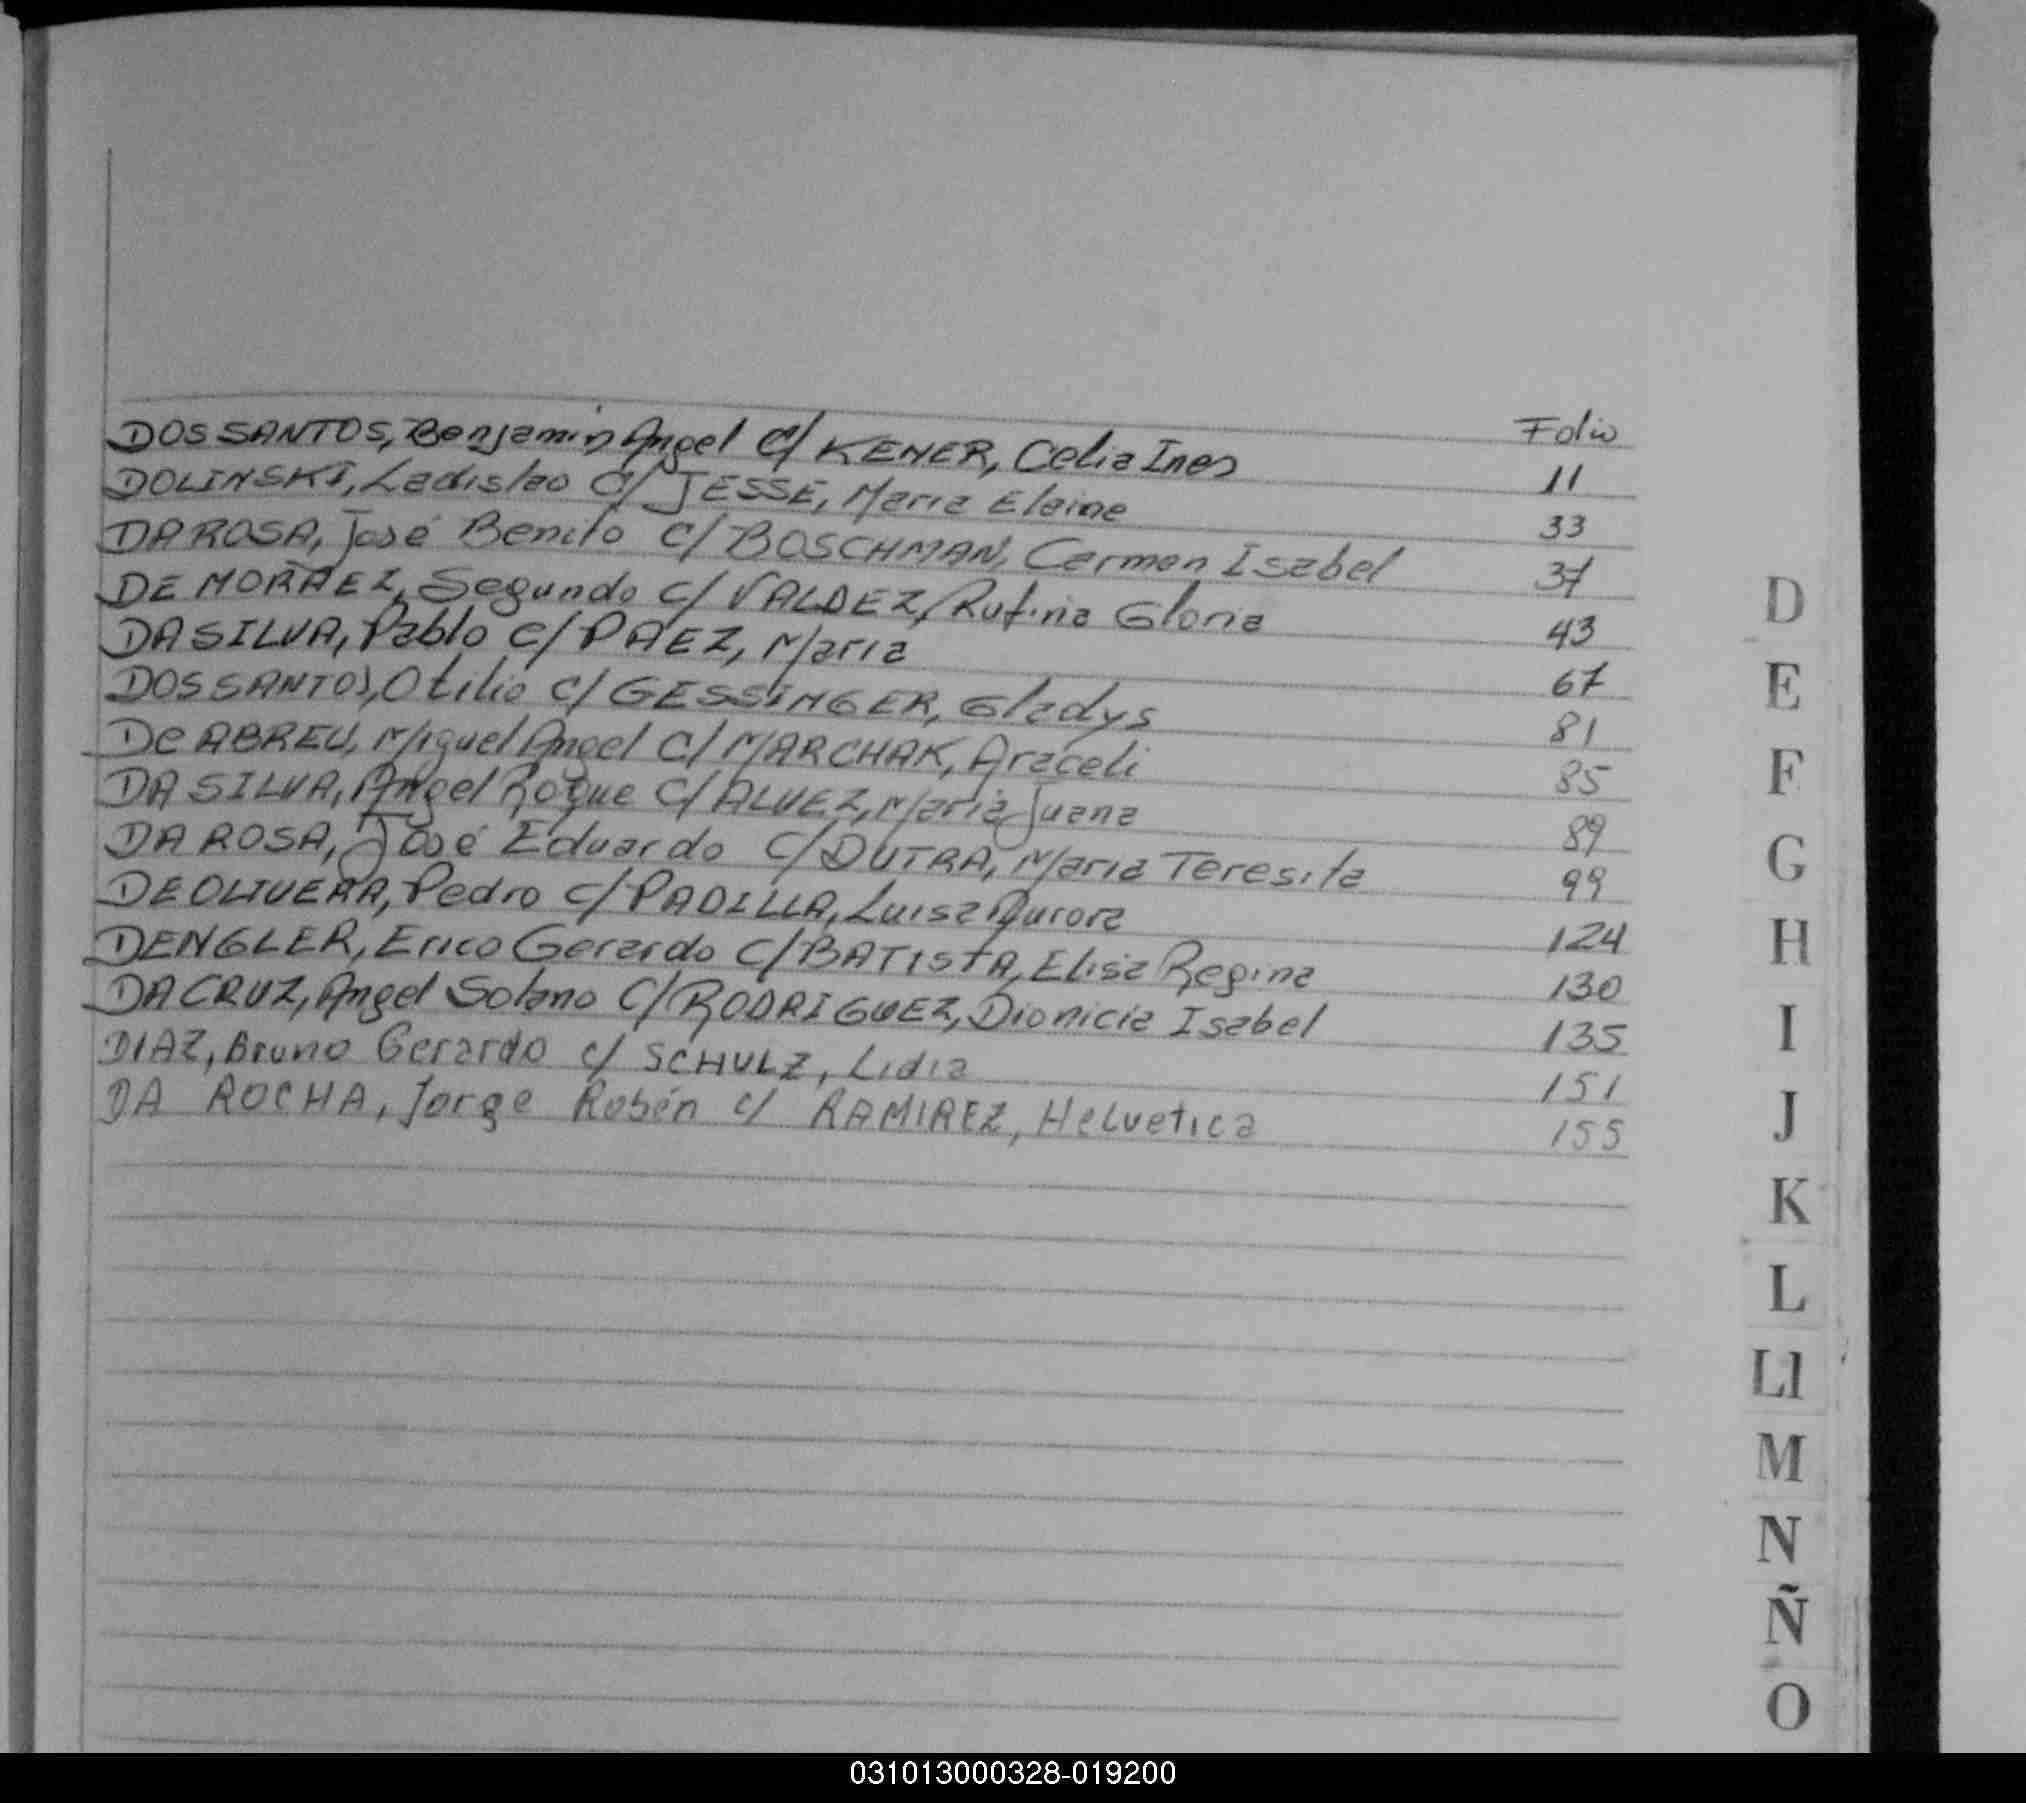 Folio
DOS SANTOS, Benjamin Angel c/ KENER, Celia Ines 11
DOLINSKI, Ladislao c/ JESSE, Maria Elaine 33
DA ROSA, José Benito c/ BOSCHMAN, Carmen Isabel 37
DE MORAEZ, Segundo c/ VALDEZ, Rufina Gloria 43
DA SILVA, Pablo c/ PAEZ, Maria 67
DOS SANTOS, Otilio c/ GESSINGER, Gladys 81
De ABREU, Miguel Angel c/ MARCHAK, Araceli 85
DA SILVA, Angel Roque c/ ALVEZ, Maria Juana 89
DA ROSA, José Eduardo c/ DUTRA, Maria Teresita 99
DE OLIVERA, Pedro c/ PADILLA, Luisa Aurora 124
DENGLER, Erico Gerardo c/ BATISTA, Elisa Regina 130
DA CRUZ, Angel Solano c/ RODRIGUEZ, Dionicia Isabel 135
DIAZ, Bruno Gerardo c/ SCHULZ, Lidia 151
DA ROCHA, Jorge Rubén c/ RAMIREZ, Helvetica 155
D
E
F
G
H
I
J
K
L
Ll
M
N
Ñ
O
031013000328-019200